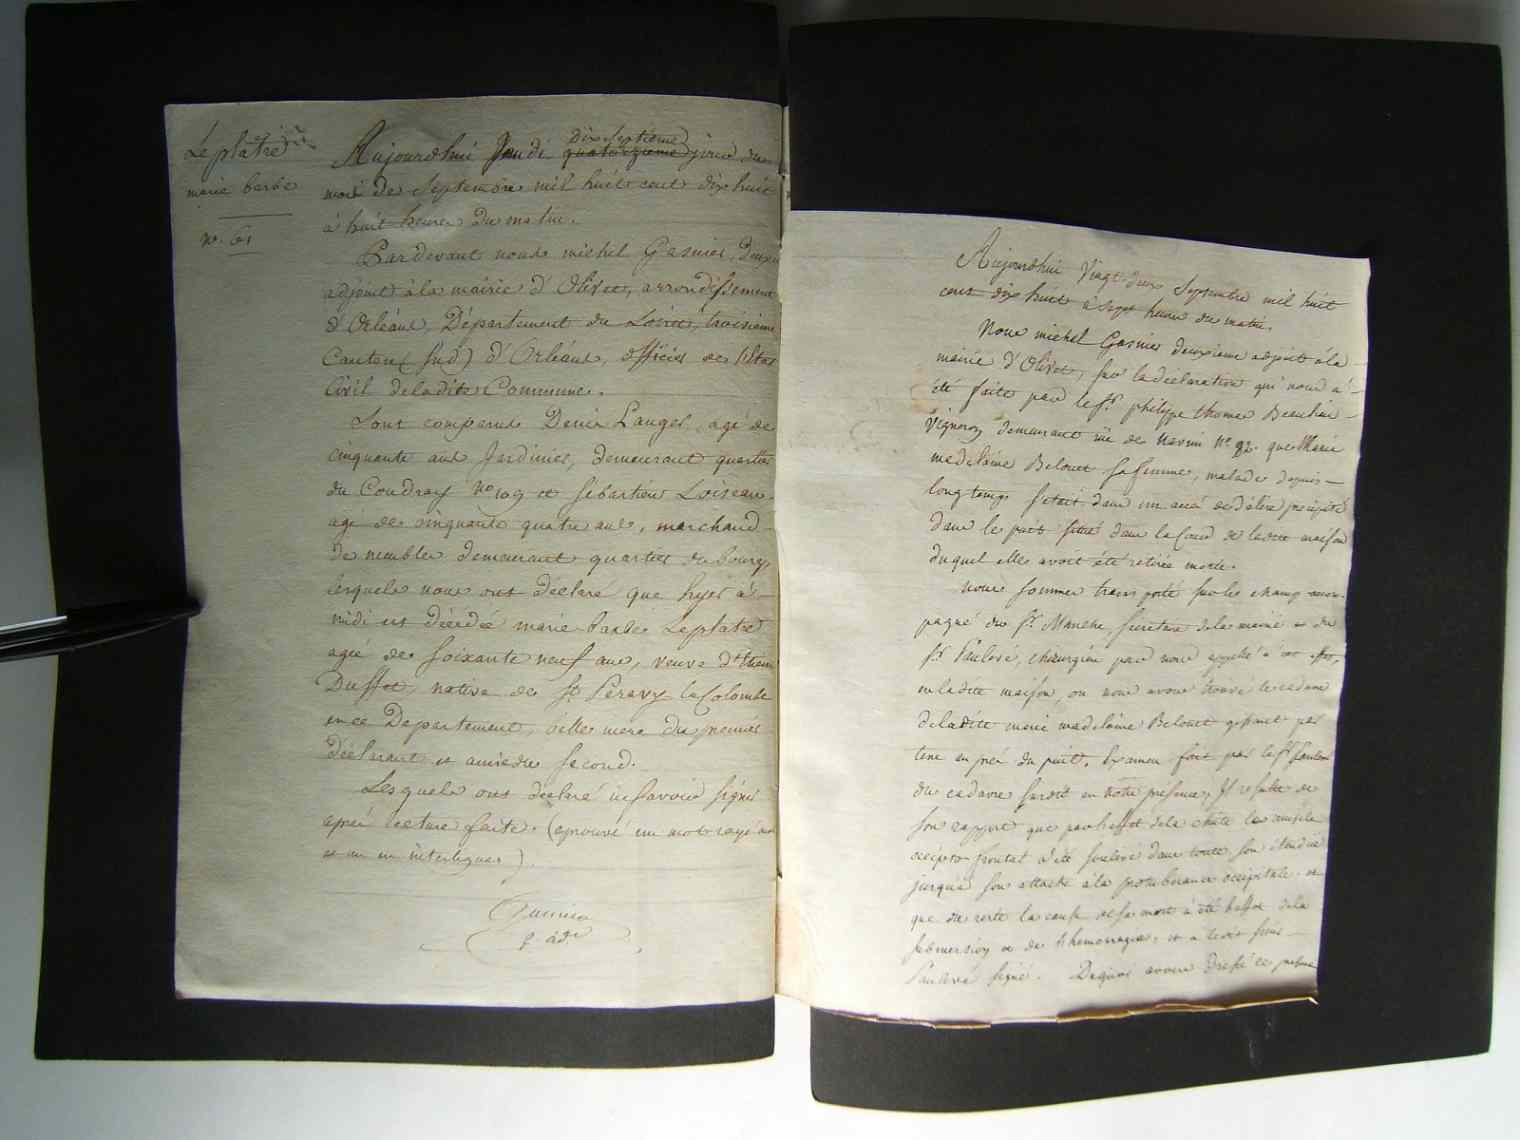 Leplatre
marie barbe
n.° 61
Aujourdhui Jeudi dix septieme quatorzieme jour du
mois de Septembre mil huit cent dix huit
à huit heures du matin.
Pardevant nous michel Gasnier, deuxe
adjoint à la mairie d'Olivet, arrondissement
d'Orléans, Département du Loiret, troisieme
Canton (sud) d'Orléans, officier de l'Etat
Civil deladite Commune.
Sont comparus Denis Lauger, agé de
cinquante ans Jardinier, demeurant quartier
du Coudray n° 109 et Sébastien Loiseau
agé de cinquante quatre ans, marchand
de meubles demeurant quartier du bourg,
lesquels nous ont déclaré que hyer à
midi est décédée marie barbe Leplatre
agée de soixante neuf ans, veuve d'
Duffot, native de St. Peravy la Colombe
ence Departement, belle mere du premier
déclarant et amie du second.
Lesquels ont déclaré ne savoir signer
après lecture faite. (aprouvé un mot rayé nul
et un en interlignes).
Gasnier
2. adt.
Aujourdhui Vingt deux Septembre mil huit
cent dix huit à sept heures du matin.
Nous michel Gasnier deuxieme adjoint à la
mairie d'Olivet, sur la déclaration qui nous a
été faite par le Sr. philippe thomas Beauhaire
Vigneron demeurant rue de n° 92. que Marie
madelaine Belouet sa femme, malade depuis
longtemps s'etait dans un accès de délire precipité
dans le puit situé dans la Cour de ladite maison
duquel elle avoit été retirée morte.
nous sommes transporté sur le champ accom-
pagné du Sr. Manche, sécretaire de la mairie et du
Sr. Paulevé, chirurgien par nous appellé à cet effet,
en ladite maison, ou nous avons trouvé le cadavre
deladite marie madelaine Belouet gissant par
terre en près du puit. Examen fait par le Sr. Paulevé
du cadavre susdit en notre presence, Il resulte de
son rapport que par l'effet de la chute le muscle
occipito-frontal a été soulevé dans toute son étendue
jusqu'à son attache à la protuberance occipitale. et
que du reste la cause de sa mort a été l'effet de la
submersion et de l'hemorragie, et a ledit Sieur
Paulevé signé. Dequoi avons dressé le present